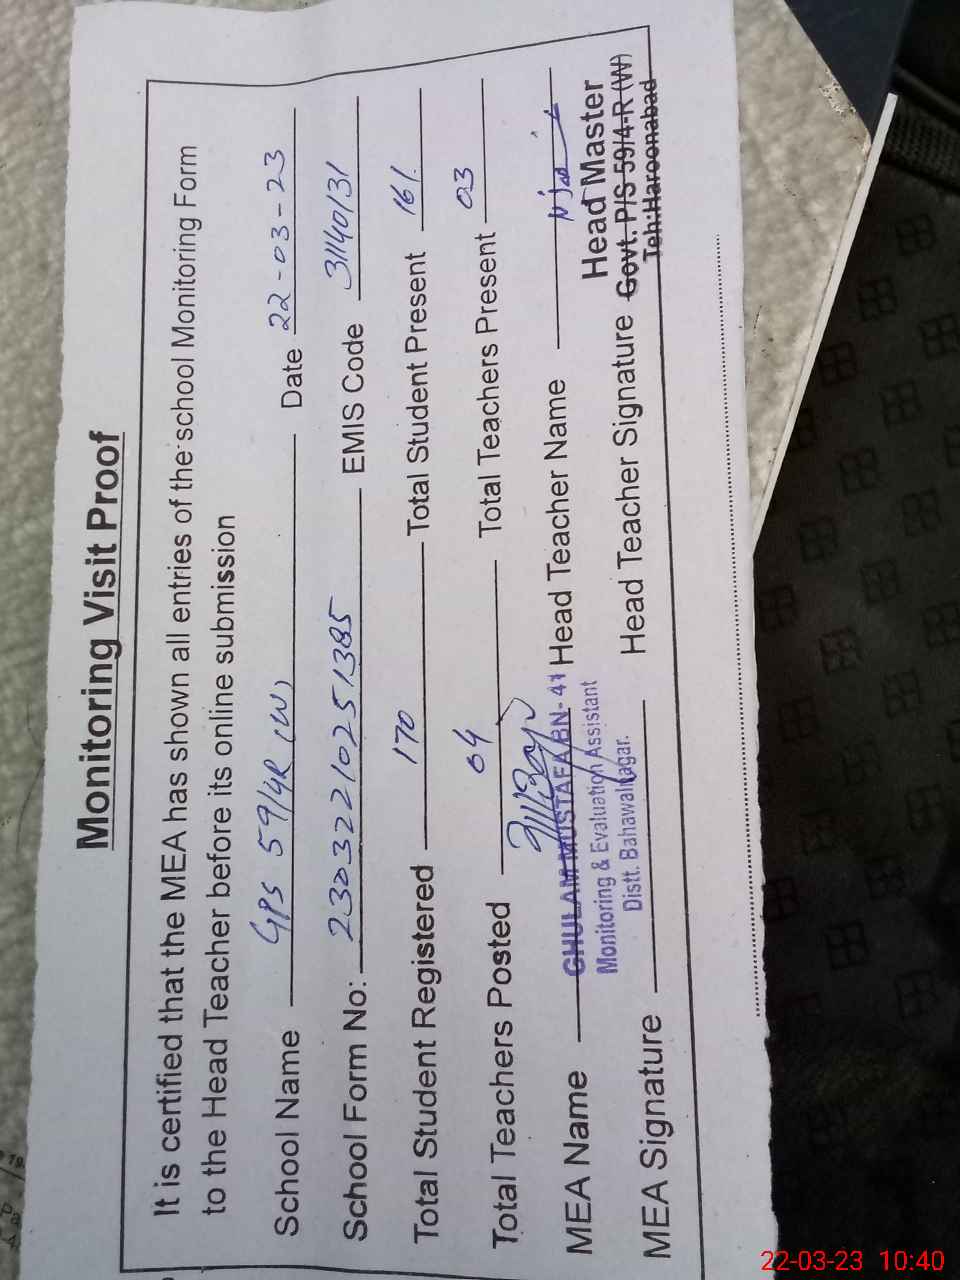 Monitoring Visit Proof
It is certified that the MEA has shown all entries of the school Monitoring Form
to the Head Teacher before its online submission
School Name GPS 59/4R (W) Date 22-03-23
School Form No: 23032210251385 EMIS Code 31140131
Total Student Registered 170 Total Student Present 161
Total Teachers Posted 04 Total Teachers Present 03
MEA Name GHULAM MUSTAFA BN-41 Head Teacher Name
Monitoring & Evaluation Assistant
Distt. Bahawalnagar.
MEA Signature Head Teacher Signature
Head Master
Govt. P/S 59/4-R (W)
Teh:Haroonabad
22-03-23 10:40